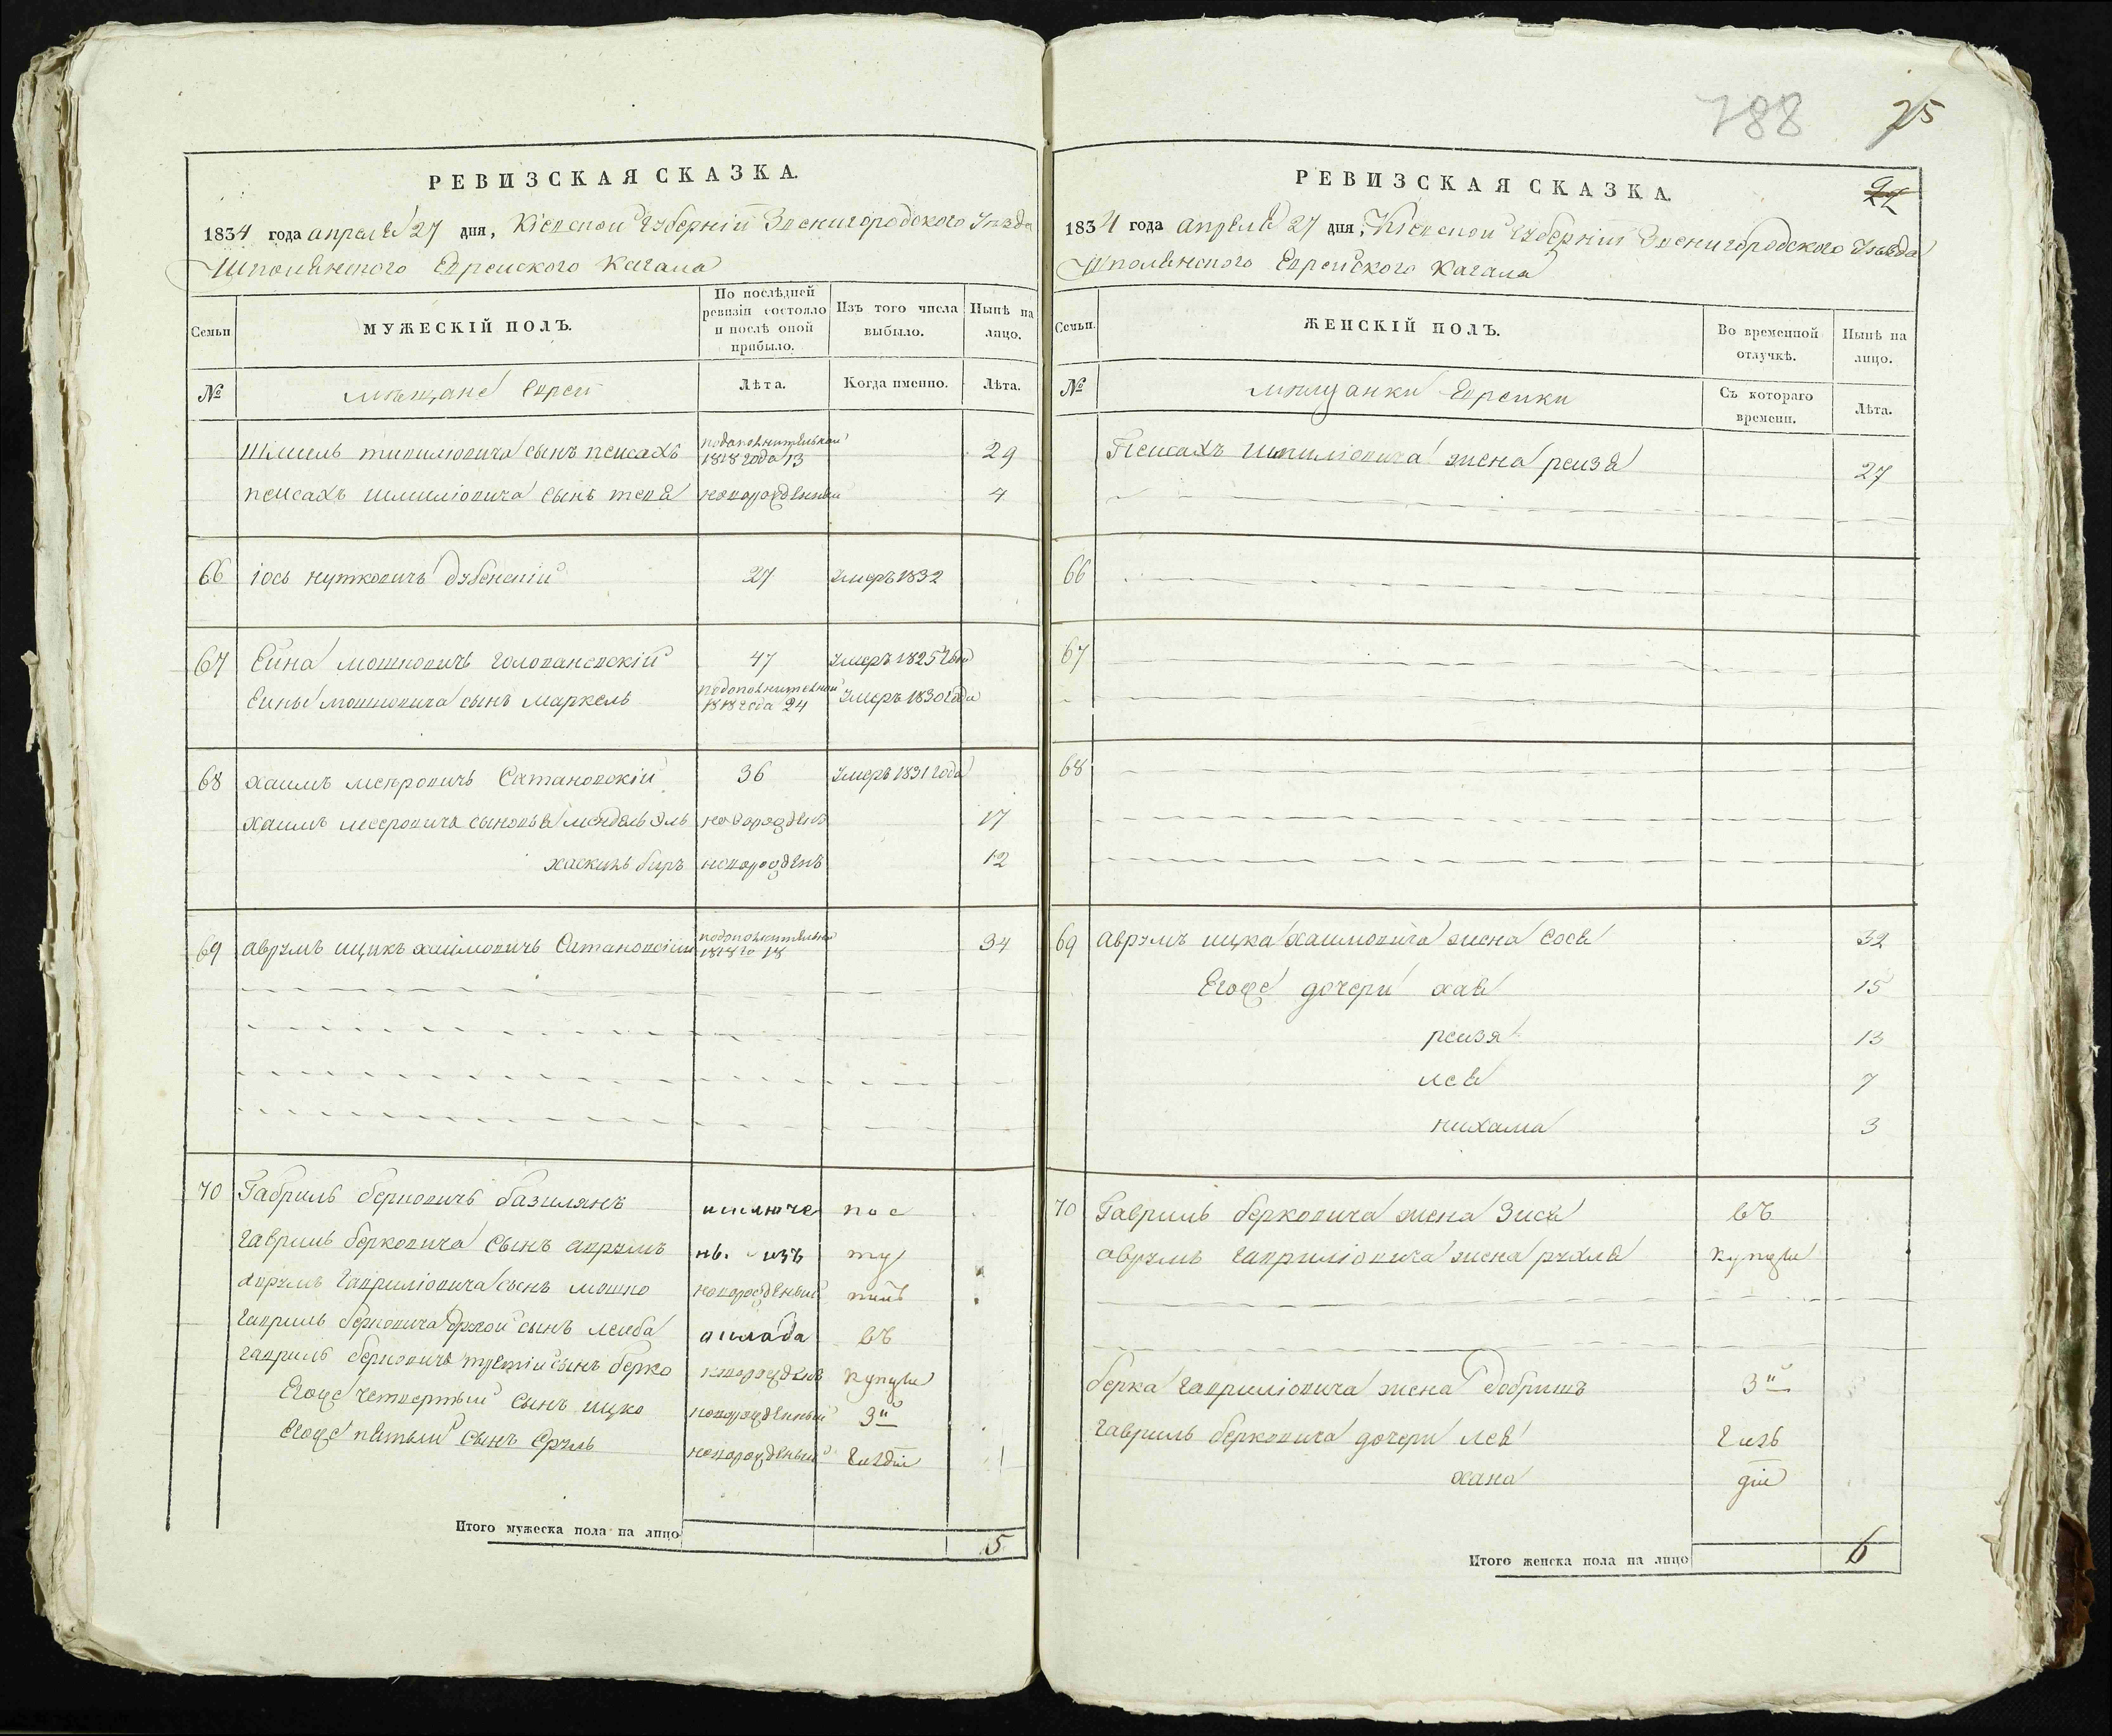 РЕВИЗСКАЯ СКАЗКА.
1834 года апреля 27 дня, Кіевской Губерніи Звенигородского Уезда
Шполянского Еврейского Кагала
Семьи
МУЖЕСКІЙ ПОЛЪ.
По послѣдней ревизіи состояло и послѣ оной прибыло.
Изъ того числа выбыло.
Нынѣ на лицо.
№
мѣщане Евреи
Лѣта.
Когда именно.
Лѣта.
Шмиль сынъ пейсахъ подополнительной 1818 года 13 29
пейсахъ шмиліовича сынъ новорожденный 4
66 іось нутковичъ дубенскій 27 Умеръ 1832
67 Ейна мошковичъ голованевскій 47 Умеръ 1825 года
Ейны мошковича сынъ маркель подополнителной 1818 года 24 Умеръ 1830 года
68 хаимъ меѣровичъ Сатановскій 36 Умеръ 1831 года
хаимъ меѣровича сыновья мендель эль новорожденъ 17
хаскель беръ новорожденъ 12
69 аврумъ ицикъ хаимовичъ Сатановскій подополнительной 1818 го 18 34
70 Габриль берковичъ базилянъ исключе пос
гавриль берковича сынъ аврумъ нъ. изъ ту
аврумъ гавриліовича сынъ мошко новорожденный пилъ
гавриль берковича другой сынъ лейба оклада въ
гавриль берковича третій сынъ берко новорожденъ купцы
Егоже четвертый сынъ ицко новорожденный 3й
Егоже пятый сынъ Сруль новорожденный Гилдіи
Итого мужеска пола на лицо 5
788 25
РЕВИЗСКАЯ СКАЗКА.
1834 года апреля 27 дня, Кіевской Губерніи Звенигородского Уезда
Шполянского Еврейского Кагала
Семьи.
ЖЕНСКІЙ ПОЛЪ.
Во временной отлучкѣ.
Нынѣ на лицо.
№
мѣщанки Еврейки
Съ котораго времени.
Лѣта.
Пейсахъ шмиліовича жена рейзя 27
66
67
68
69 аврумъ ицка хаимовича жена Сося 32
Егоже дочери хая 15
рейзя 13
лея 7
нихама 3
70 Гавриль берковича жена Зися въ
аврумъ гавриліовича жена рухля купцы
берка гавриліовича жена добришъ 3й
гавриль берковича дочери лея Гиль
хана діи
Итого женска пола на лицо 6